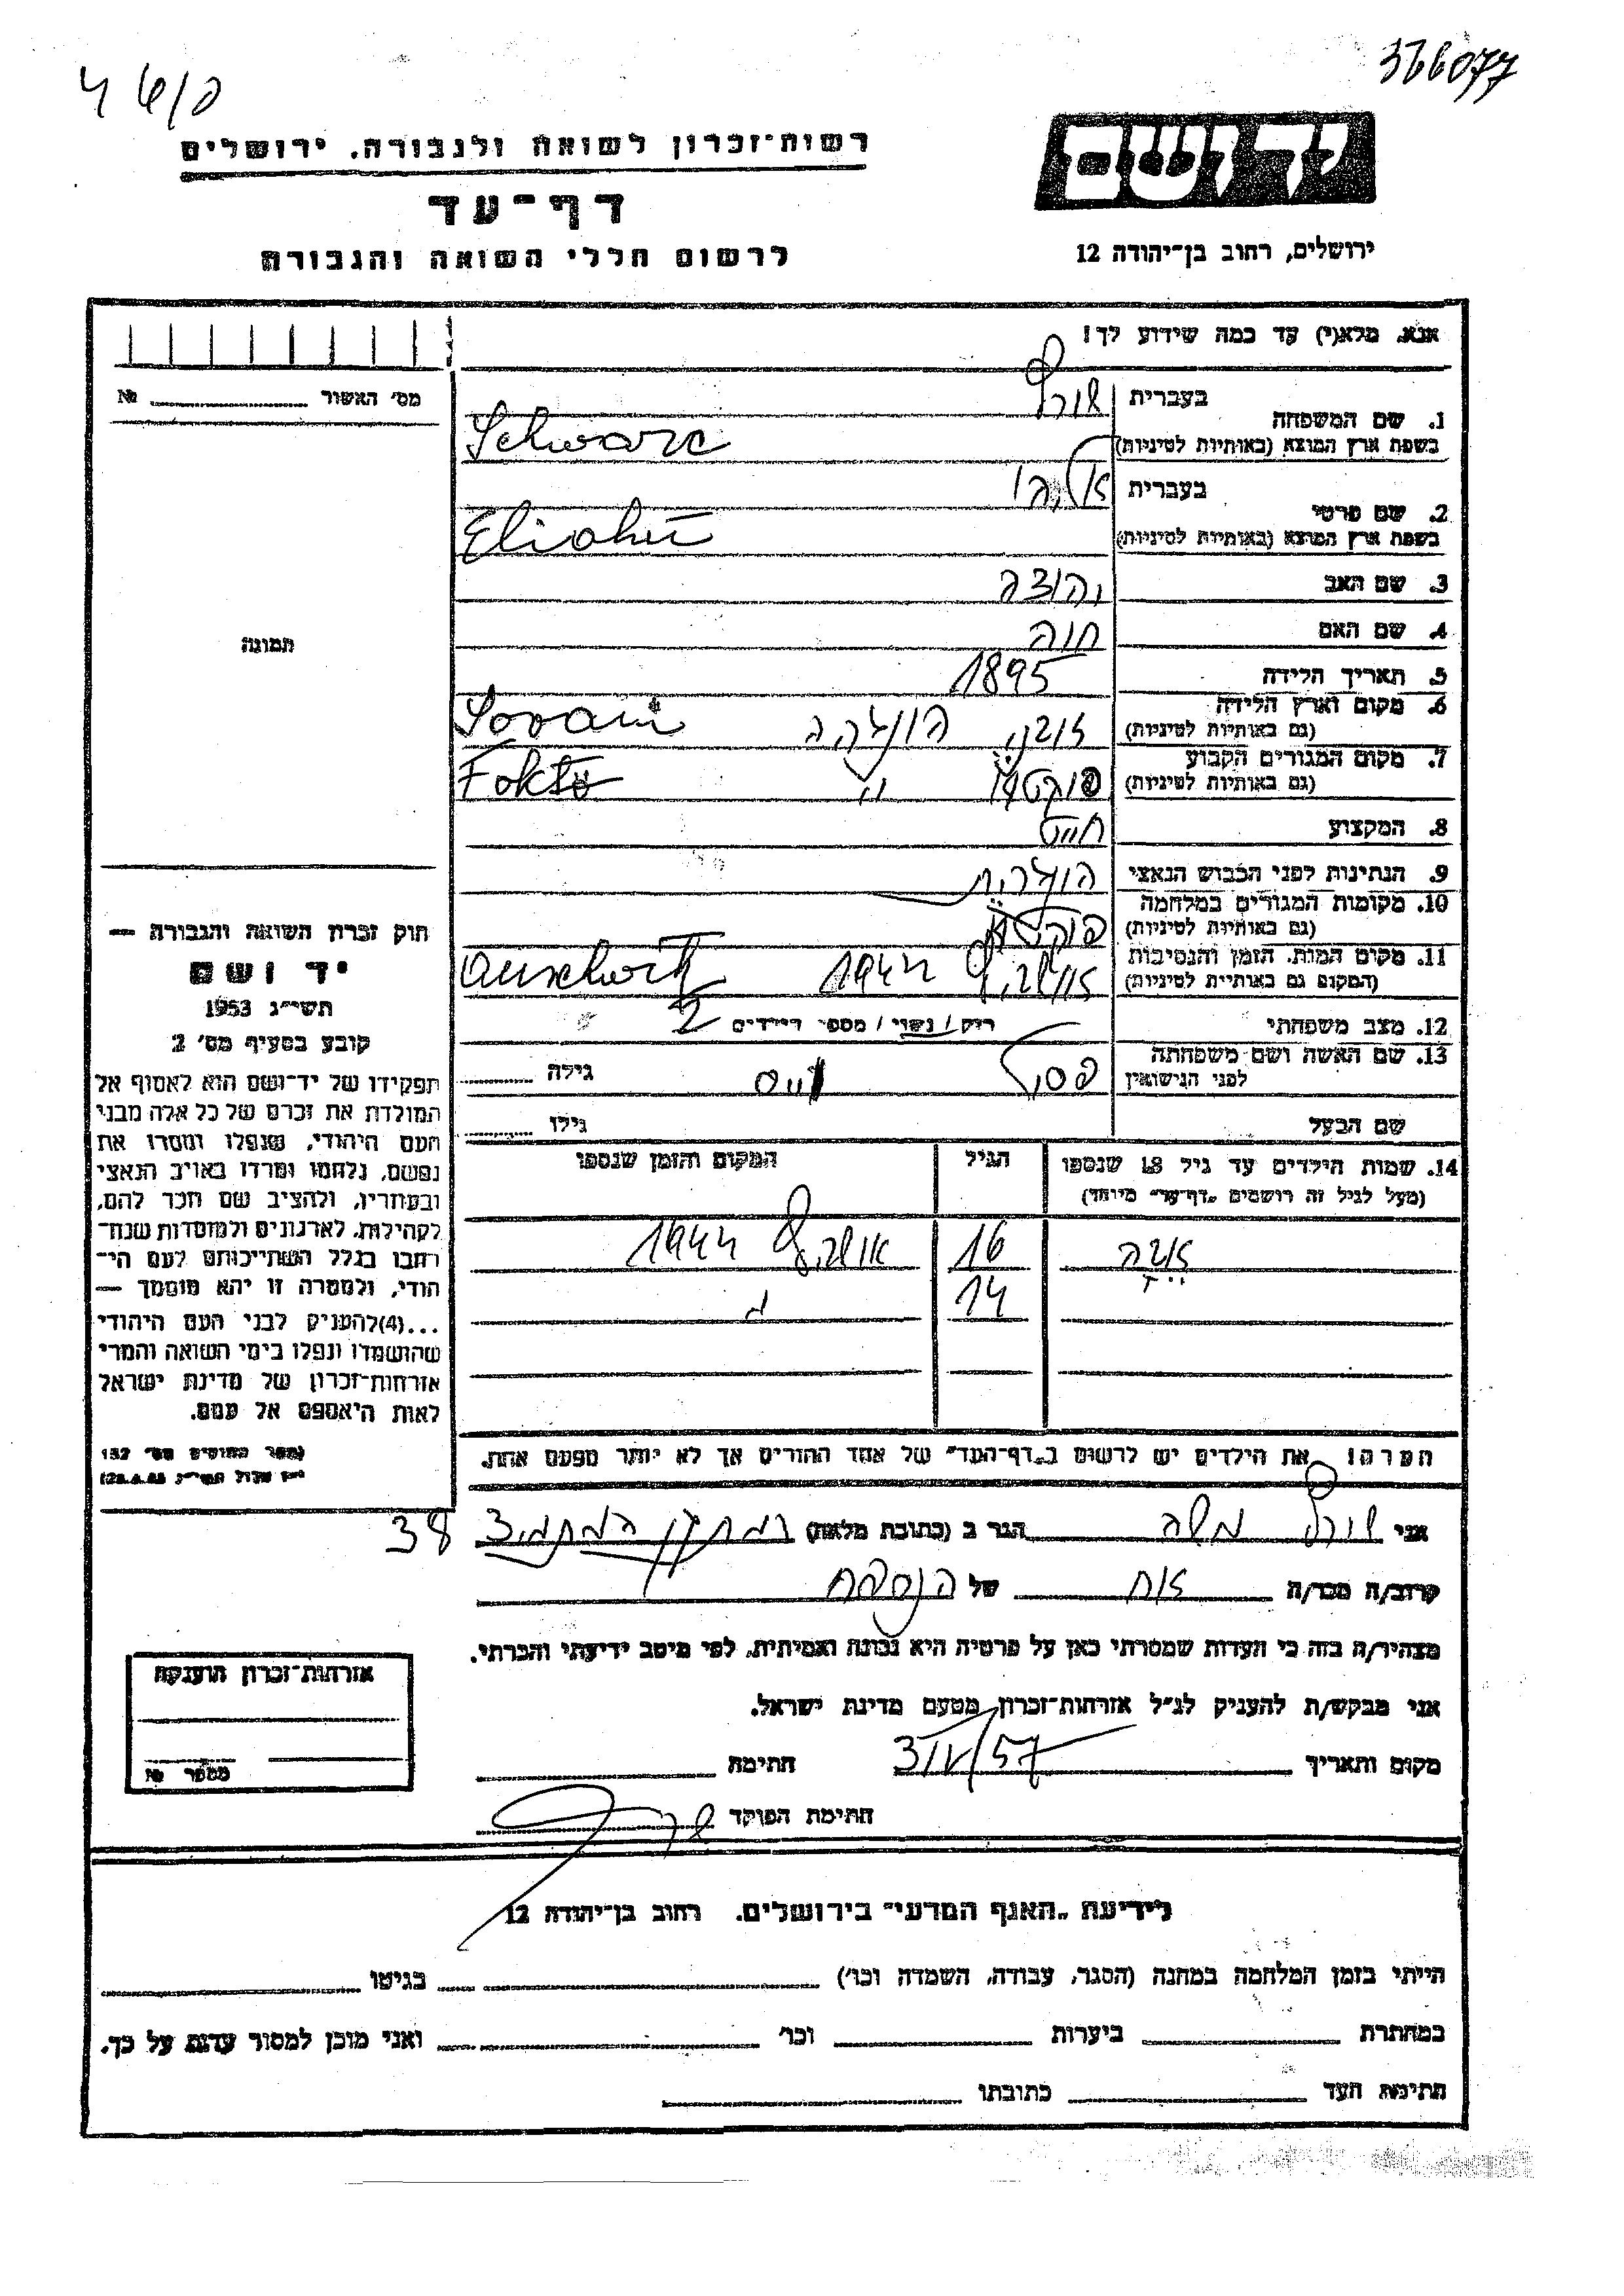 366077
רשות-זכרון לשואה ולגבורה. ירושלים
דף-עד
לרשום חללי השואה והגבורה
יד ושם
ירושלים, רחוב בן-יהודה 12
אנא, מלא(י) עד כמה שידוע לך!
מס' האשור №
תמונה
1. שם המשפחה בעברית שורץ
בשפת ארץ המוצא (באותיות לטיניות) Schwarc
2. שם פרטי בעברית אליהו
בשפת ארץ המוצא (באותיות לטיניות) Eliahu
3. שם האב יהודה
4. שם האם חוה
5. תאריך הלידה 1895
6. מקום וארץ הלידה
(גם באותיות לטיניות) הונגריה
7. מקום המגורים הקבוע
(גם באותיות לטיניות) Foktö
8. המקצוע חייט
9. הנתינות לפני הכבוש הנאצי הונגרית
10. מקומות המגורים במלחמה
(גם באותיות לטיניות)
11. מקום המות, הזמן והנסיבות
(המקום גם באותיות לטיניות) אושביץ 1944 Auschwitz
12. מצב משפחתי רוק / נשוי / מספר הילדים 2
13. שם האשה ושם משפחתה
לפני הנישואין גילה
שם הבעל גילו
14. שמות הילדים עד גיל 18 שנספו הגיל המקום והזמן שנספו
(מעל לגיל זה רושמים "דף-עד" מיוחד)
16 אושביץ 1944
14
הערה! את הילדים יש לרשום ב"דף-העד" של אחד ההורים אך לא יותר מפעם אחת.
חוק זכרון השואה והגבורה —
יד ושם
תשי"ג 1953
קובע בסעיף מס' 2
תפקידו של יד-ושם הוא לאסוף אל
המולדת את זכרם של כל אלה מבני
העם היהודי, שנפלו ומסרו את
נפשם, נלחמו ומרדו באויב הנאצי
ובעוזריו, ולהציב שם וזכר להם,
לקהילות, לארגונים ולמוסדות שנח-
רבו בגלל השתייכותם לעם הי-
הודי, ולמטרה זו יהא מוסמך —
...(4) להעניק לבני העם היהודי
שהושמדו ונפלו בימי השואה והמרי
אזרחות-זכרון של מדינת ישראל
לאות היאספם אל עמם.
(ספר החוקים מס' 132
אני שורץ משה הגר ב (כתובת מלאה) 38
קרוב/ה מכר/ה אח של הנספה
מצהיר/ה בזה כי העדות שמסרתי כאן על פרטיה היא נכונה ואמיתית, לפי מיטב ידיעתי והכרתי.
אני מבקש/ת להעניק לנ"ל אזרחות-זכרון מטעם מדינת ישראל.
מקום ותאריך 3/V/57 חתימה
חתימת הפוקד
אזרחות-זכרון הוענקה
מספר №
לידיעת "האגף המדעי" בירושלים. רחוב בן-יהודה 12
הייתי בזמן המלחמה במחנה (הסגר, עבודה, השמדה וכו') בגיטו
במחתרת ביערות וכו' ואני מוכן למסור עדות על כך.
חתימת העד כתובתו